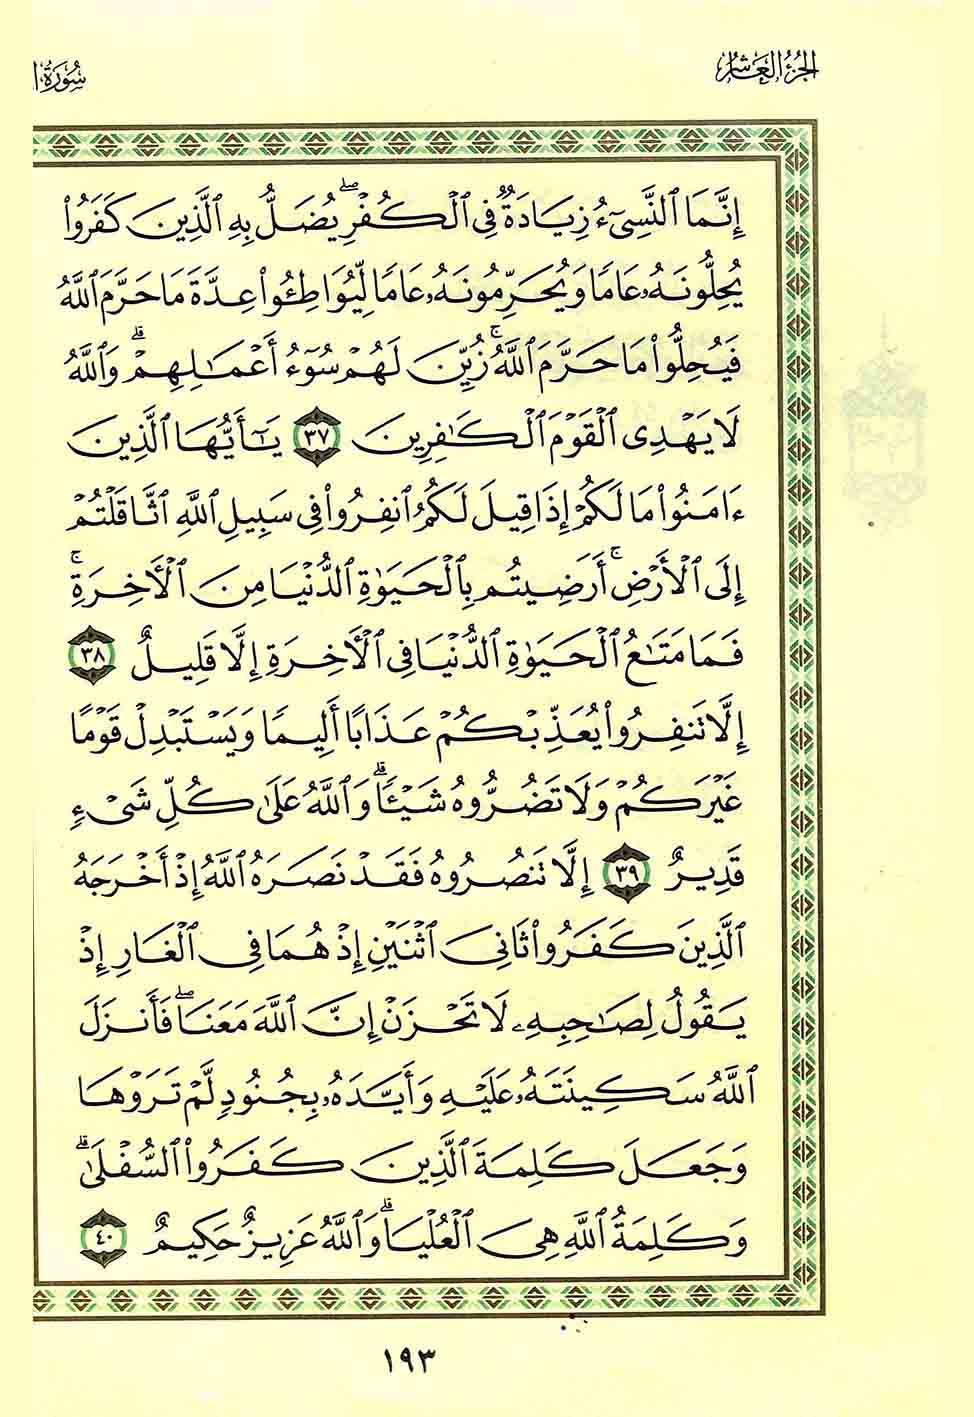 الجُزْءُ العَاشِرُ
سُورَةُ
إِنَّمَا ٱلنَّسِىٓءُ زِيَادَةٌ فِى ٱلْكُفْرِ ۖ يُضَلُّ بِهِ ٱلَّذِينَ كَفَرُوا۟
يُحِلُّونَهُۥ عَامًا وَيُحَرِّمُونَهُۥ عَامًا لِّيُوَاطِـُٔوا۟ عِدَّةَ مَا حَرَّمَ ٱللَّهُ
فَيُحِلُّوا۟ مَا حَرَّمَ ٱللَّهُ ۚ زُيِّنَ لَهُمْ سُوٓءُ أَعْمَـٰلِهِمْ ۗ وَٱللَّهُ
لَا يَهْدِى ٱلْقَوْمَ ٱلْكَـٰفِرِينَ ٣٧ يَـٰٓأَيُّهَا ٱلَّذِينَ
ءَامَنُوا۟ مَا لَكُمْ إِذَا قِيلَ لَكُمُ ٱنفِرُوا۟ فِى سَبِيلِ ٱللَّهِ ٱثَّاقَلْتُمْ
إِلَى ٱلْأَرْضِ ۚ أَرَضِيتُم بِٱلْحَيَوٰةِ ٱلدُّنْيَا مِنَ ٱلْـَٔاخِرَةِ ۚ
فَمَا مَتَـٰعُ ٱلْحَيَوٰةِ ٱلدُّنْيَا فِى ٱلْـَٔاخِرَةِ إِلَّا قَلِيلٌ ٣٨
إِلَّا تَنفِرُوا۟ يُعَذِّبْكُمْ عَذَابًا أَلِيمًا وَيَسْتَبْدِلْ قَوْمًا
غَيْرَكُمْ وَلَا تَضُرُّوهُ شَيْـًٔا ۗ وَٱللَّهُ عَلَىٰ كُلِّ شَىْءٍ
قَدِيرٌ ٣٩ إِلَّا تَنصُرُوهُ فَقَدْ نَصَرَهُ ٱللَّهُ إِذْ أَخْرَجَهُ
ٱلَّذِينَ كَفَرُوا۟ ثَانِىَ ٱثْنَيْنِ إِذْ هُمَا فِى ٱلْغَارِ إِذْ
يَقُولُ لِصَـٰحِبِهِۦ لَا تَحْزَنْ إِنَّ ٱللَّهَ مَعَنَا ۖ فَأَنزَلَ
ٱللَّهُ سَكِينَتَهُۥ عَلَيْهِ وَأَيَّدَهُۥ بِجُنُودٍ لَّمْ تَرَوْهَا
وَجَعَلَ كَلِمَةَ ٱلَّذِينَ كَفَرُوا۟ ٱلسُّفْلَىٰ ۗ
وَكَلِمَةُ ٱللَّهِ هِىَ ٱلْعُلْيَا ۗ وَٱللَّهُ عَزِيزٌ حَكِيمٌ ٤٠
١٩٣